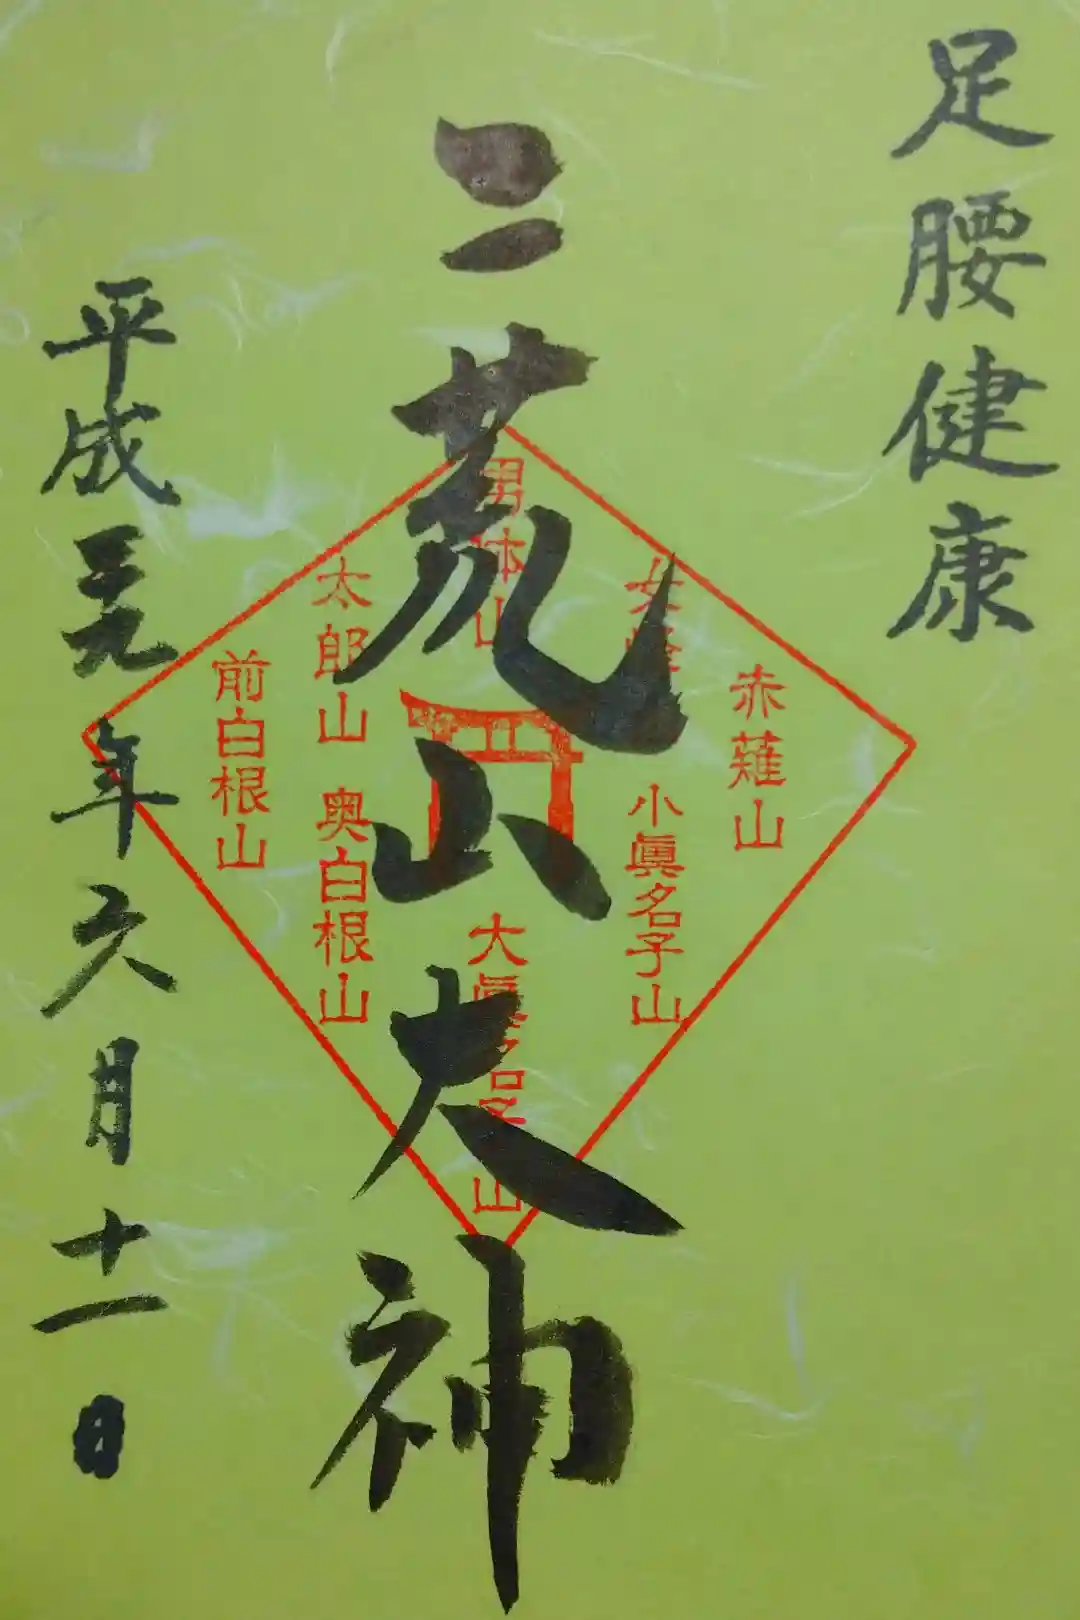 足腰健康
二荒山大神
平成二十九年六月十一日
赤薙山
女峰
小眞名子山
男体山
大眞名子山
太郎山
奥白根山
前白根山